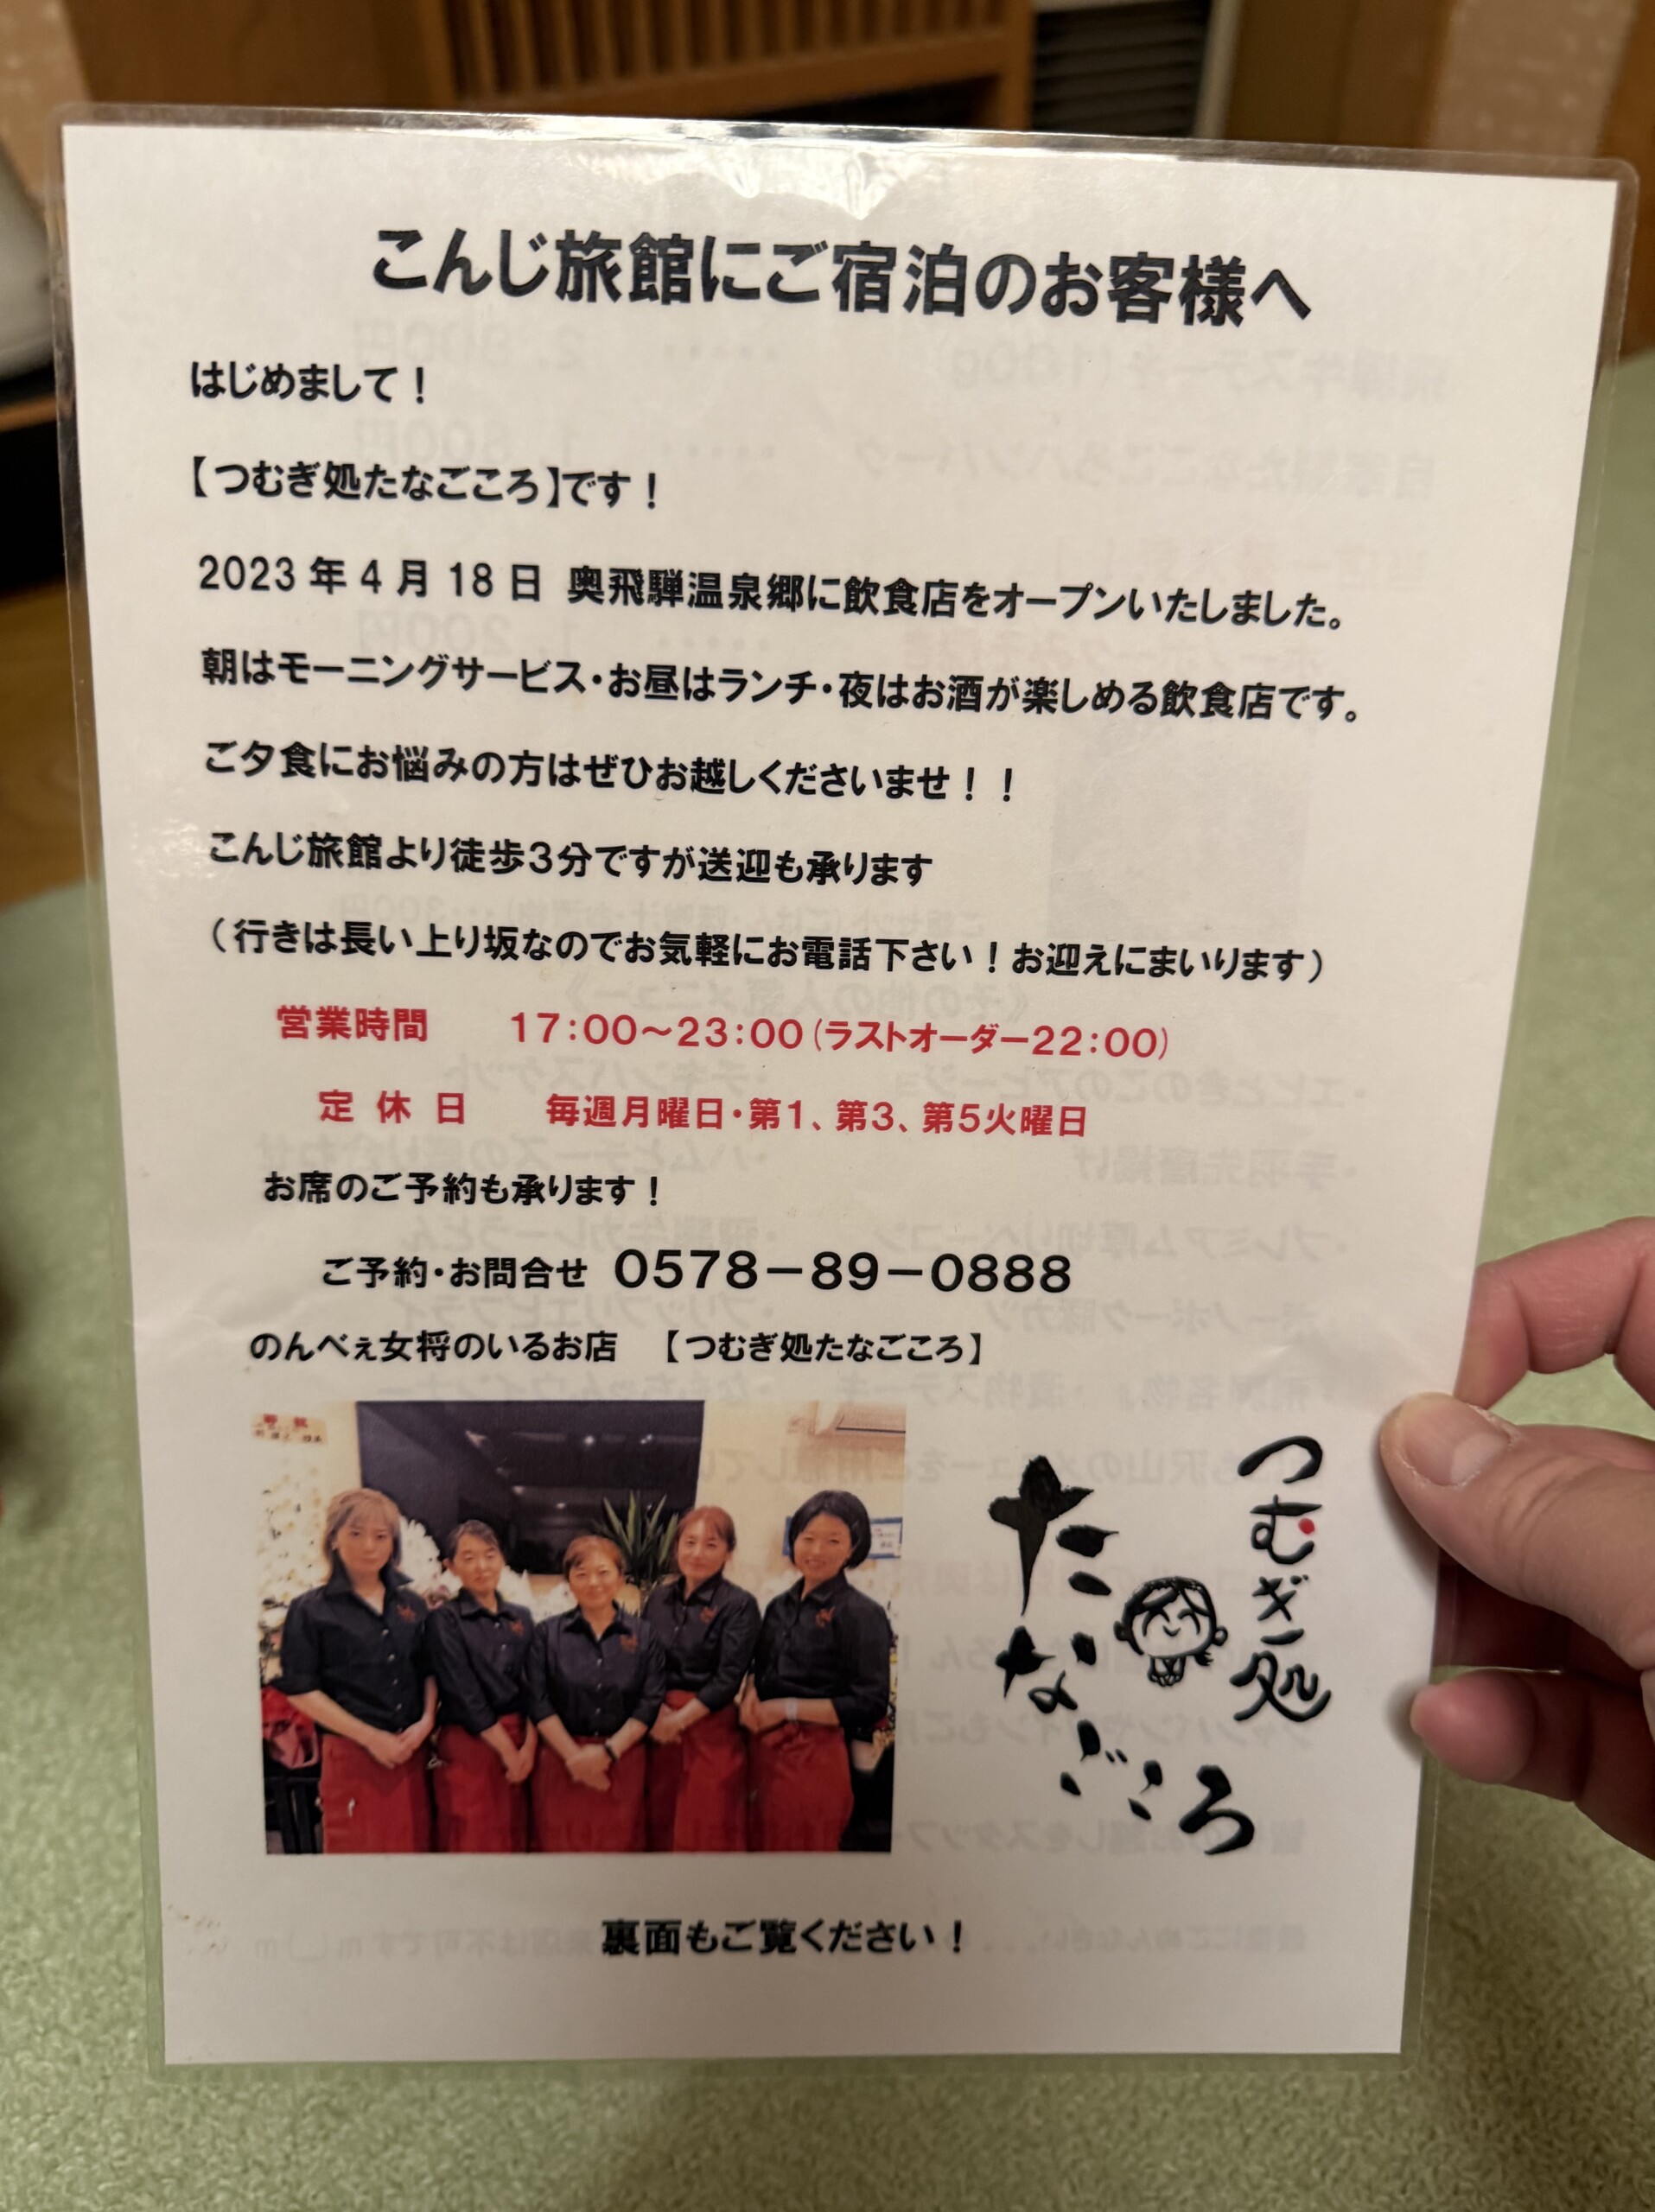 こんじ旅館にご宿泊のお客様へ
はじめまして！
【つむぎ処たなごころ】です！
2023年4月18日 奥飛騨温泉郷に飲食店をオープンいたしました。
朝はモーニングサービス・お昼はランチ・夜はお酒が楽しめる飲食店です。
ご夕食にお悩みの方はぜひお越しくださいませ！！
こんじ旅館より徒歩3分ですが送迎も承ります
（行きは長い上り坂なのでお気軽にお電話下さい！お迎えにまいります）
営業時間　17：00～23：00（ラストオーダー22：00）
定休日　毎週月曜日・第1、第3、第5火曜日
お席のご予約も承ります！
ご予約・お問合せ 0578－89－0888
のんべぇ女将のいるお店　【つむぎ処たなごころ】
つむぎ処
たなごころ
裏面もご覧ください！